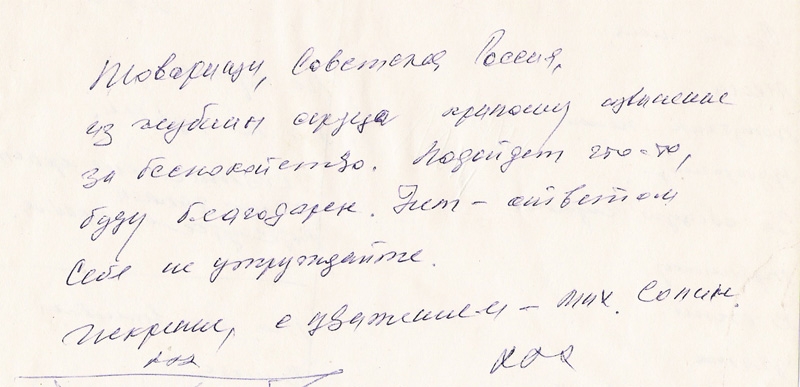 Товарищи, Советская Россия,
из глубин сердца приношу извинение
за беспокойство. Подойдет что-то,
буду благодарен. Нет – ответом
себя не утруждайте.
Искренне, с уважением – Мих. Сопин.